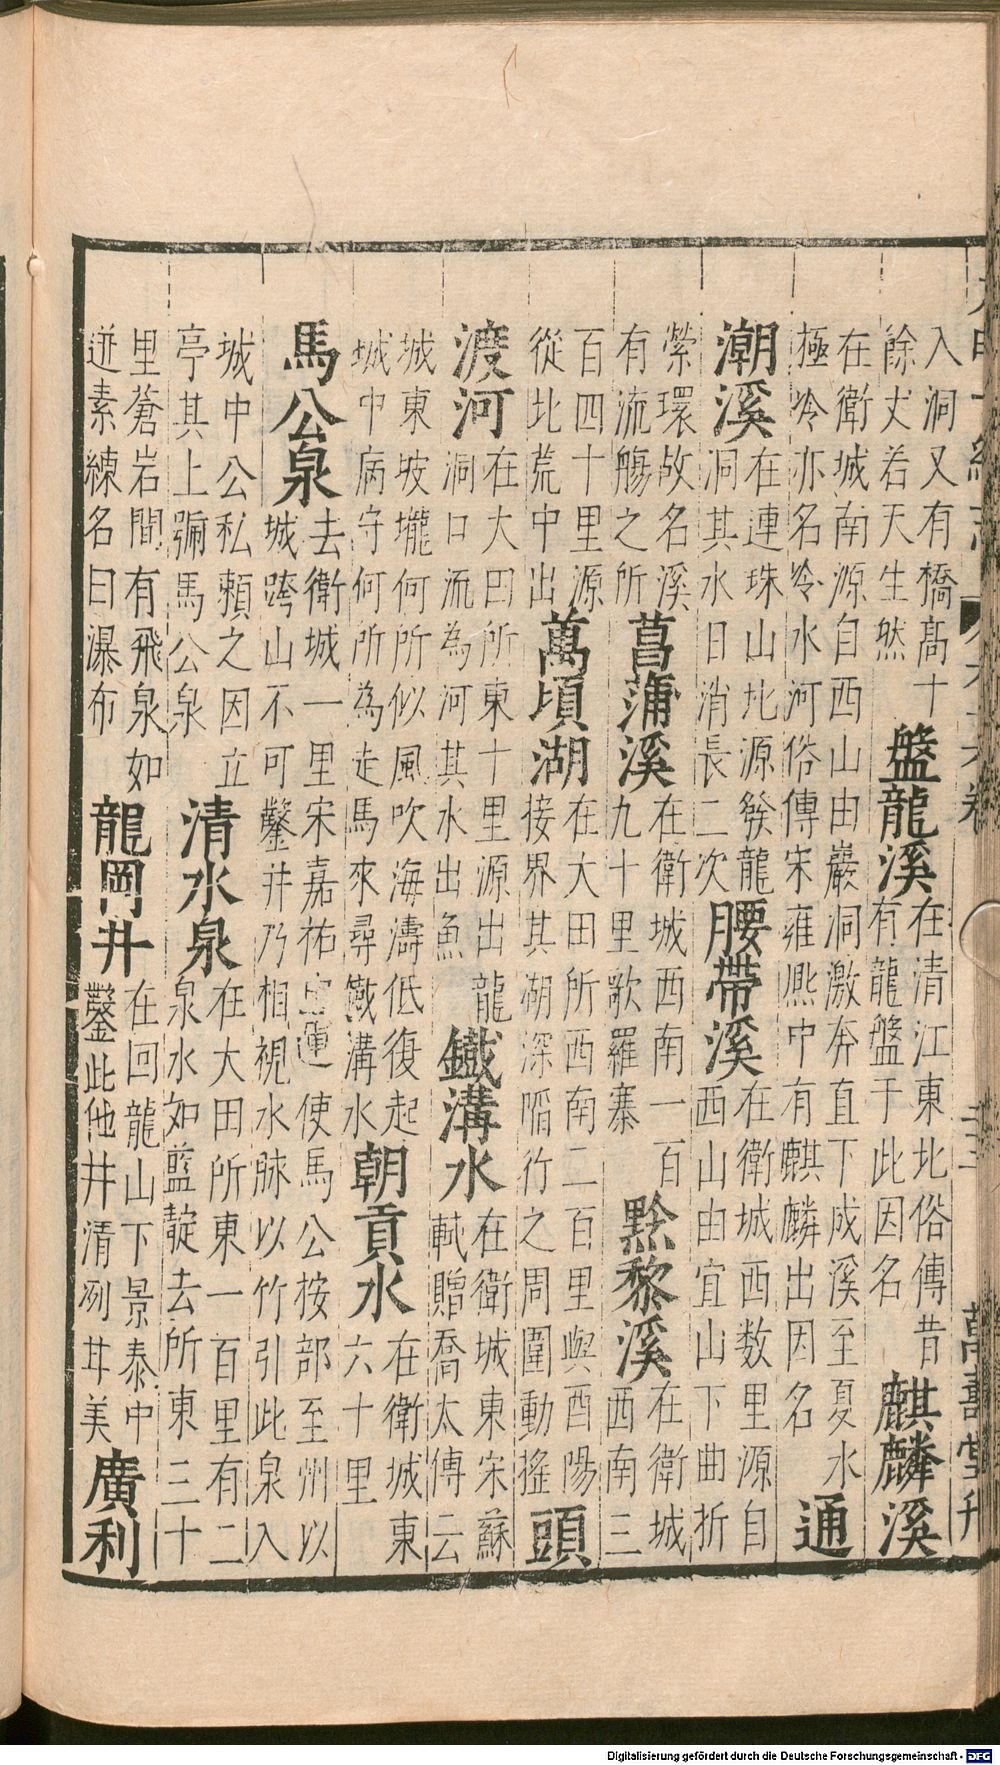 大明一統志 萬壽堂刊
入洞又有橋高十
餘丈若天生然
盤龍溪
在清江東北俗傳昔
有龍盤于此因名
麒麟溪
在衛城南源自西山由巖洞激奔直下成溪至夏水
極冷亦名冷水河俗傳宋雍熈中有麒麟出因名
通
潮溪
在連珠山北源發龍
洞其水日消長二次
腰帶溪
在衛城西数里源自
西山由宜山下曲折
縈環故名溪
有流觴之所
菖蒲溪
在衛城西南一百
九十里歌羅寨
黔黎溪
在衛城
西南三
百四十里源
從北荒中出
萬頃湖
在大田所西南二百里與酉陽
接界其湖深陷行之周圍動搖
頭
渡河
在大田所東十里源出龍
洞口流為河其水出魚
鐵溝水
在衛城東宋蘇
軾贈喬太傅云
城東坡壠何所似風吹海濤低復起
城中病守何所為走馬來尋鐵溝水
朝貢水
在衛城東
六十里
馬公泉
去衛城一里宋嘉祐運使馬公按部至州以
城跨山不可鑿井乃相視水脉以竹引此泉入
城中公私賴之因立
亭其上號馬公泉
清水泉
在大田所東一百里有二
泉水如藍靛去所東三十
里蒼岩間有飛泉如
迸素練名曰瀑布
龍岡井
在回龍山下景泰中
鑿此他井清冽甘美
廣利
Digitalisierung gefördert durch die Deutsche Forschungsgemeinschaft - DFG